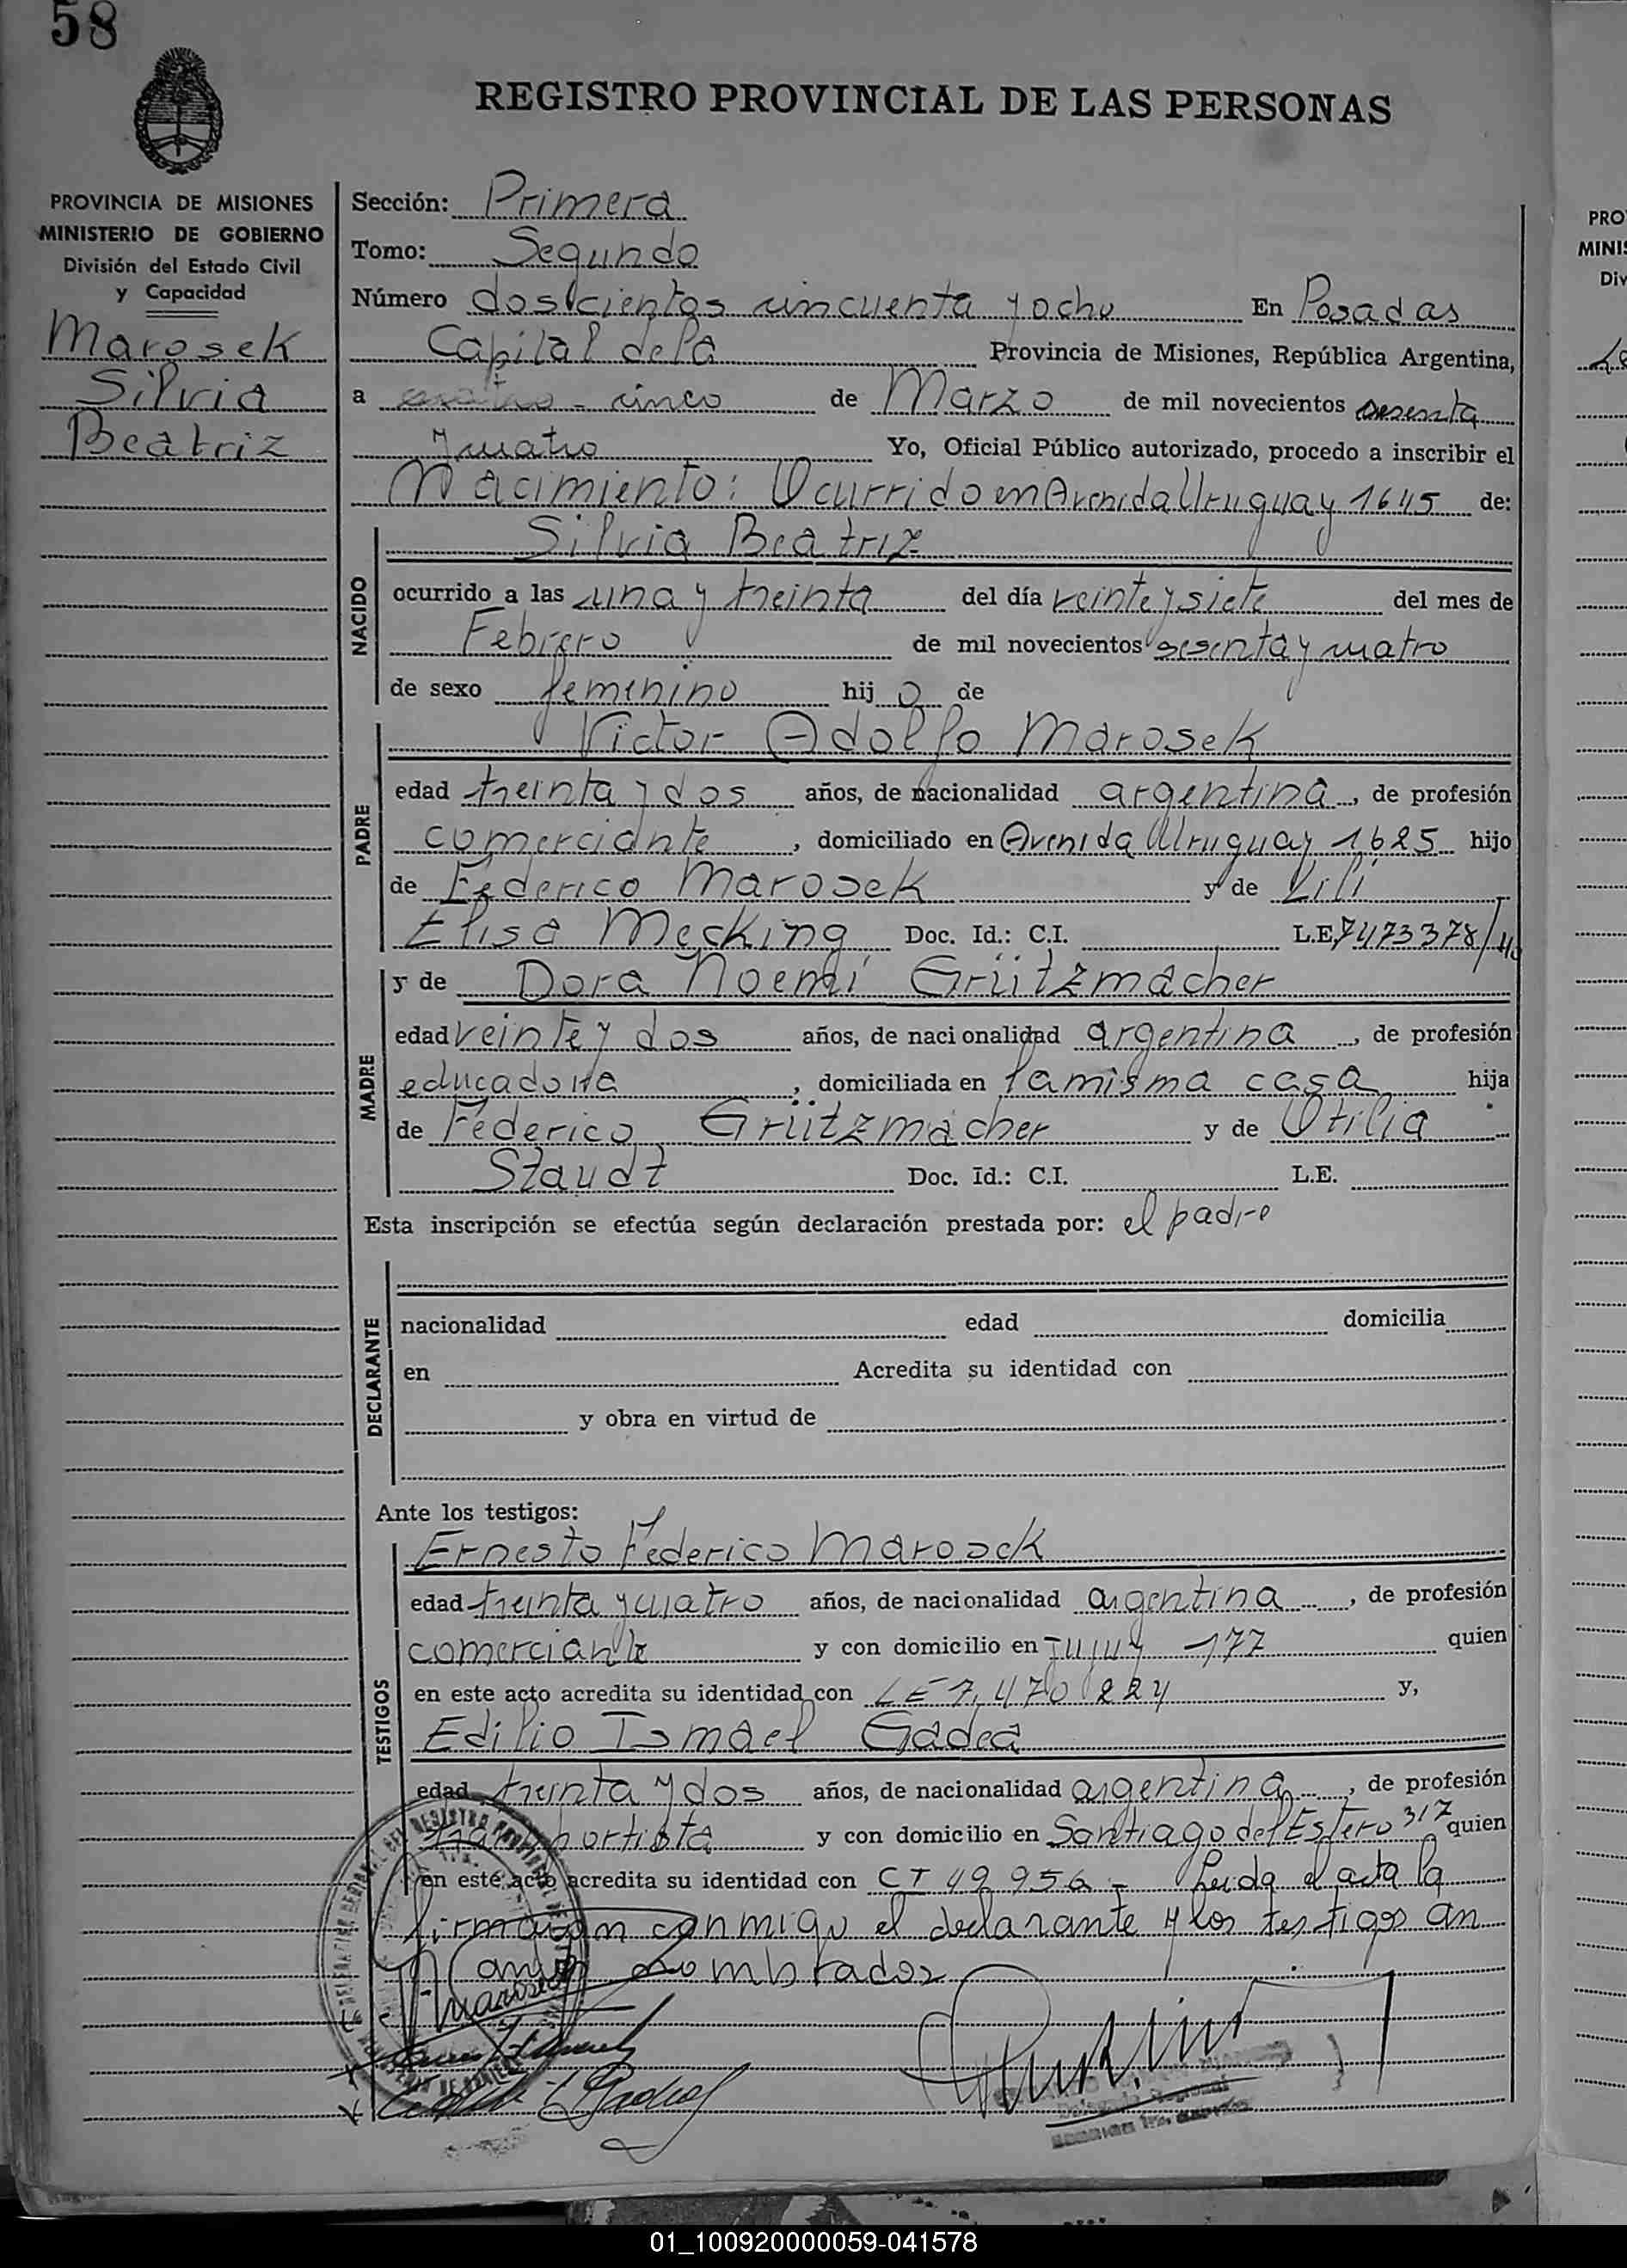 58
REGISTRO PROVINCIAL DE LAS PERSONAS
PROVINCIA DE MISIONES
MINISTERIO DE GOBIERNO
División del Estado Civil
y Capacidad
Marosek
Silvia
Beatriz
Sección: Primera
Tomo: Segundo
Número doscientos cincuenta y ocho En Posadas
Capital de la Provincia de Misiones, República Argentina,
a cinco de Marzo de mil novecientos sesenta
y cuatro Yo, Oficial Público autorizado, procedo a inscribir el
Nacimiento: Ocurrido en Avenida Uruguay 1645 de:
NACIDO
Silvia Beatriz
ocurrido a las una y treinta del día veinte y siete del mes de
Febrero de mil novecientos sesenta y cuatro
de sexo femenino hijo de
PADRE
Victor Adolfo Marosek
edad treinta y dos años, de nacionalidad argentina, de profesión
comerciante, domiciliado en Avenida Uruguay 1685 hijo
de Federico Marosek y de Lili
Elisa Mecking Doc. Id.: C.I. L.E. 7473378/
MADRE
y de Dora Noemí Grützmacher
edad veinte y dos años, de nacionalidad argentina, de profesión
educadora, domiciliada en la misma casa hija
de Federico Grützmacher y de Otilia
Staudt Doc. Id.: C.I. L.E.
Esta inscripción se efectúa según declaración prestada por: el padre
DECLARANTE
nacionalidad edad domicilia
en Acredita su identidad con
y obra en virtud de
Ante los testigos:
TESTIGOS
Ernesto Federico Marosek
edad treinta y cuatro años, de nacionalidad argentina, de profesión
comerciante y con domicilio en Jujuy 177 quien
en este acto acredita su identidad con LE 7.470.224 y,
Edilio Ismael Gadea
edad treinta y dos años, de nacionalidad argentina, de profesión
transportista y con domicilio en Santiago del Estero 317 quien
en este acto acredita su identidad con CI 49.956 - Leida el acta la
firmaron conmigo el declarante y los testigos an
nombrados
PRO
MINIS
Div
01_100920000059-041578